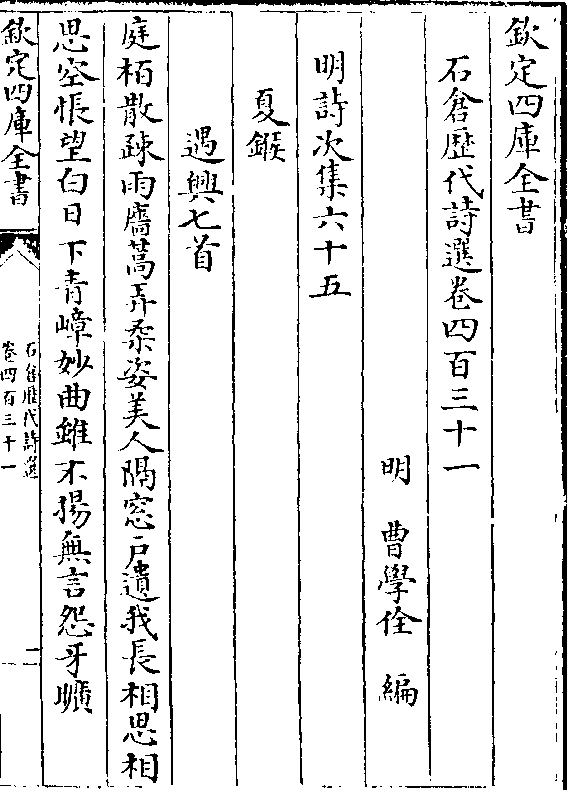 欽定四庫全書
石倉歴代詩選卷四百三十一
明 曹學佺 編
明詩次集六十五
夏鍭
遇興七首
庭栢散踈雨牕蒿弄柔姿美人隔窓户遺我長相思相
思空悵望白日下青嶂妙曲雖不揚無言怨牙曠
欽定四庫全書
石倉歴代詩選
卷四百三十一
一